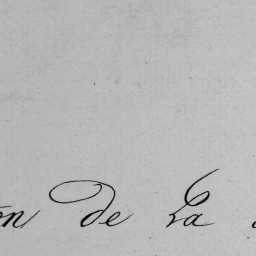 on de La